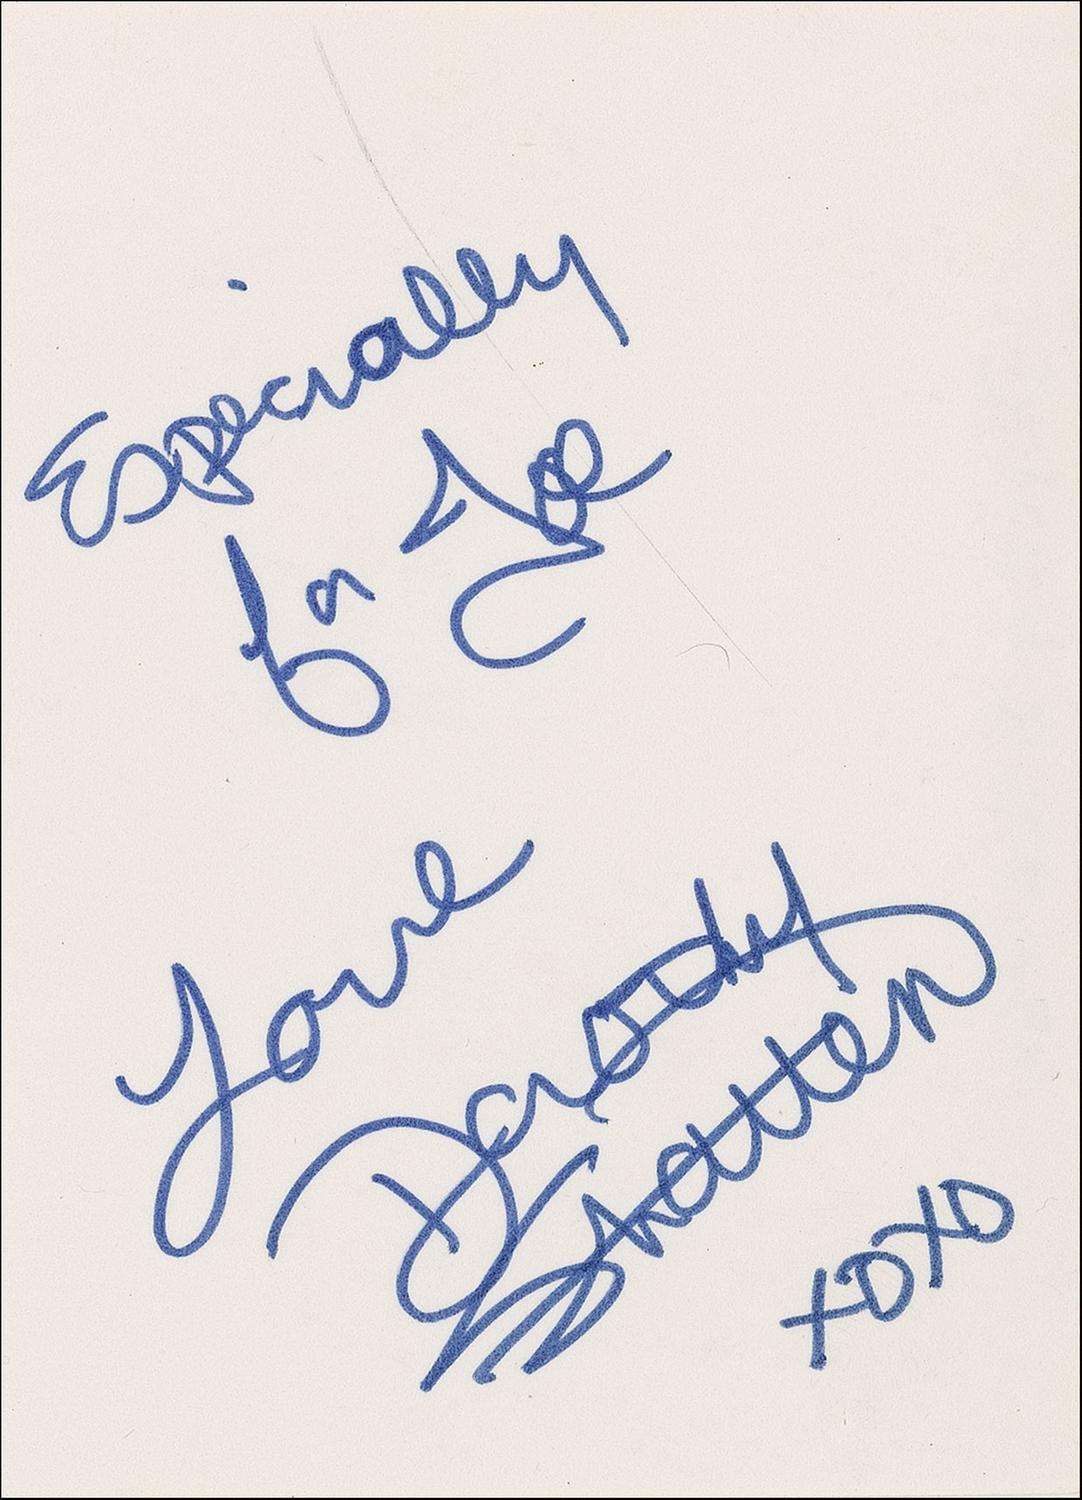 Especially
for Joe
Love
Dorothy
Stratten
XOXO